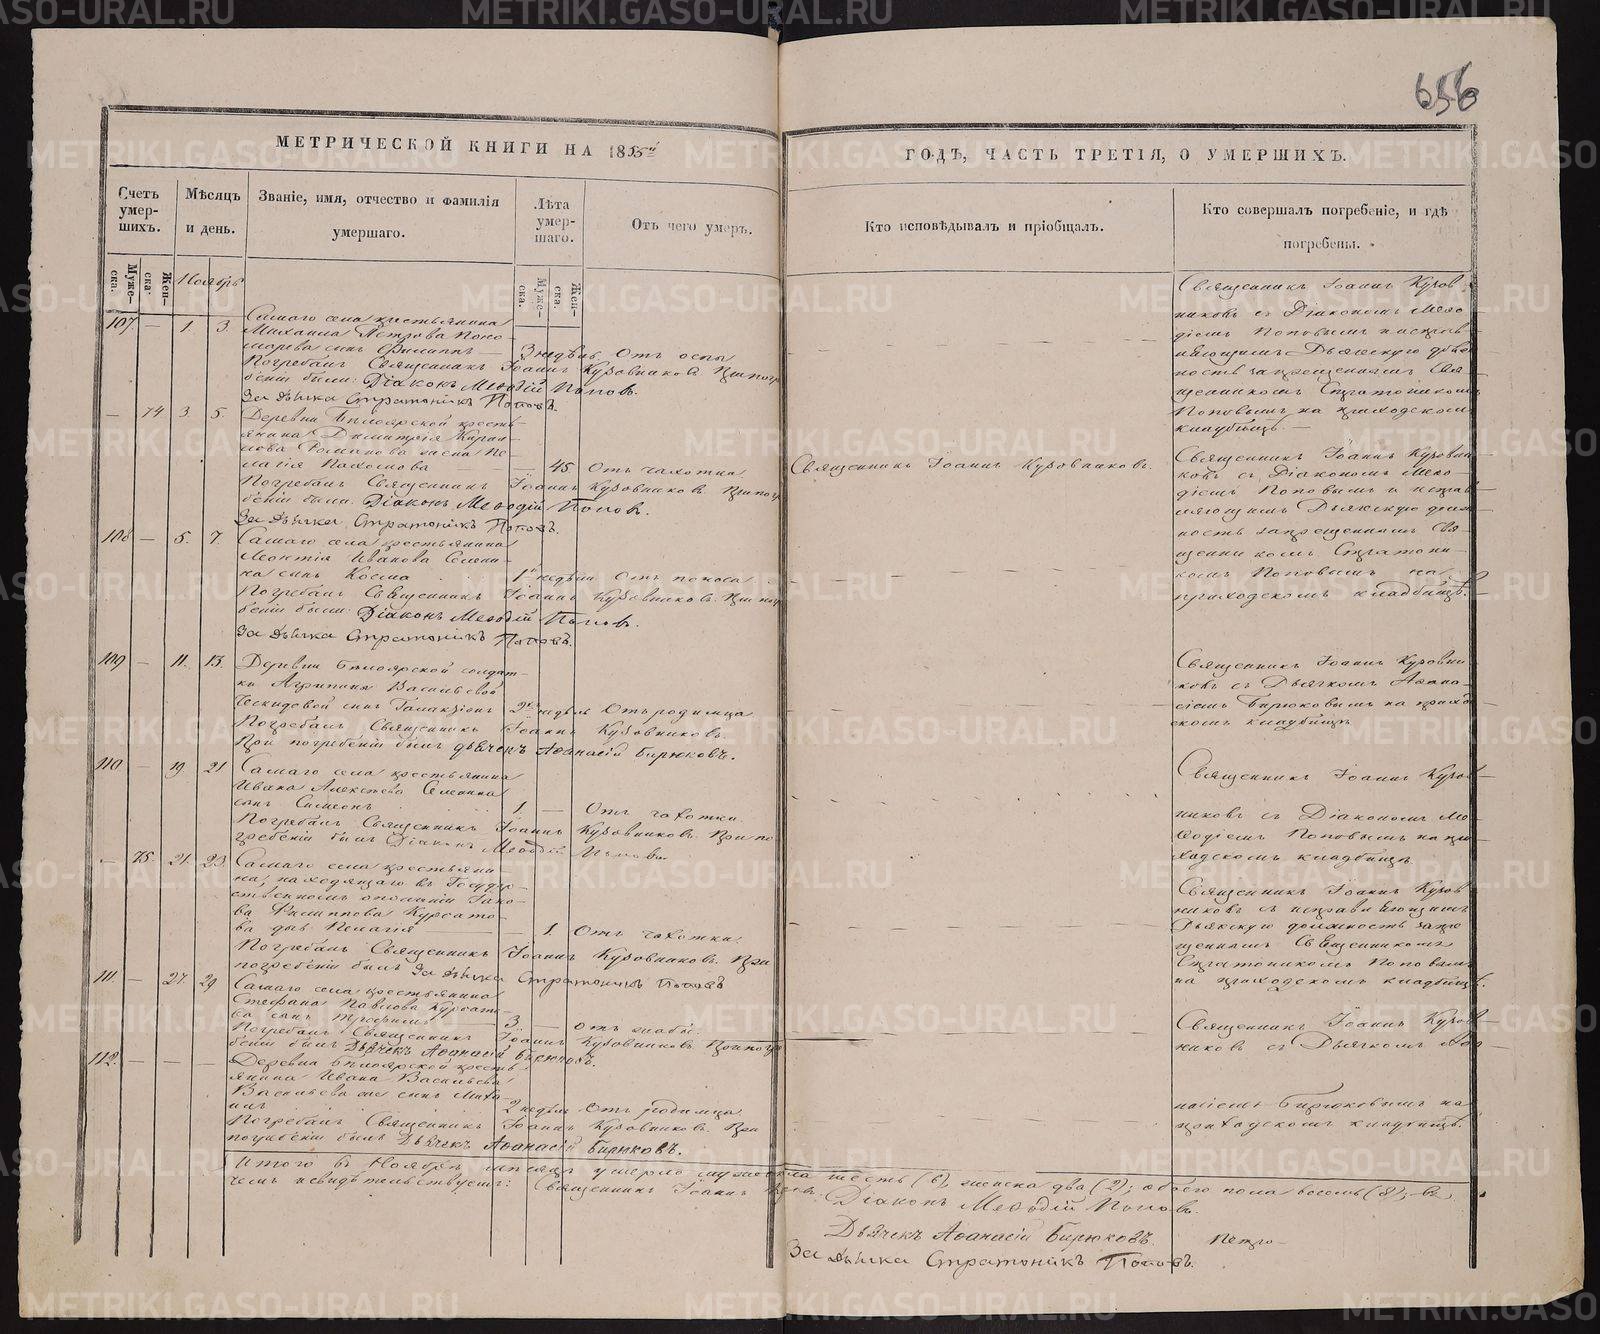 656
МЕТРИЧЕСКОЙ КНИГИ НА 1855й
ГОДЪ, ЧАСТЬ ТРЕТІЯ, О УМЕРШИХЪ.
Счетъ умер-шихъ.
Мѣсяцъ и день.
Званіе, имя, отчество и фамилія умершаго.
Лѣта умер-шаго.
Отъ чего умеръ.
Кто исповѣдывалъ и пріобщалъ.
Кто совершалъ погребеніе, и гдѣ погребены.
Муже-ска.
Жен-ска.
Ноябрь
Муже-ска.
Жен-ска.
107 — 1. 3. Самаго села крестьянина
Михаила Петрова Поно-
марева сынъ Филиппъ — 3 недѣль Отъ оспы
Погребалъ Священникъ Іоаннъ Кузовниковъ. При погре
беніи были: Діаконъ Меѳодій Поповъ.
За дьячка Стратоникъ Поповъ.
Священникъ Іоаннъ Кузов-
никовъ съ Діакономъ Меѳо-
діемъ Поповымъ и исправ-
ляющимъ Дьяческую долж-
ность запрещеннымъ Свя-
щенникомъ Стратоникомъ
Поповымъ на приходскомъ
кладбищѣ. —
— 74 3 5. Деревни Бѣлоярской кресть-
янина Димитрія Кирил-
лова Романова жена Пе-
лагія Пахомова — 45. Отъ чахотки
Погребалъ Священникъ Іоаннъ Кузовниковъ. При погре
беніи были: Діаконъ Меѳодій Поповъ.
За дьячка Стратоникъ Поповъ.
Священникъ Іоаннъ Кузовниковъ.
Священникъ Іоаннъ Кузовни-
ковъ съ Діакономъ Меѳо-
діемъ Поповымъ и исправ-
ляющимъ Дьяческую долж-
ность запрещеннымъ Свя-
щенникомъ Стратони-
комъ Поповымъ на
приходскомъ кладбищѣ.
108 — 5. 7. Самаго села крестьянина
Леонтія Иванова Семени-
на сынъ Косма 1 недѣли Отъ поноса
Погребалъ Священникъ Іоаннъ Кузовниковъ. При погре
беніи были: Діаконъ Меѳодій Поповъ.
За дьячка Стратоникъ Поповъ.
109 — 11. 13. Деревни Бѣлоярской солдат-
ки Агрипины Васильевой
сынъ Галактіонъ 2хъ недѣль Отъ родимца
Погребалъ Священникъ Іоаннъ Кузовниковъ.
При погребеніи былъ дьячекъ Аѳанасій Бирюковъ.
Священникъ Іоаннъ Кузовни-
ковъ съ Дьячкомъ Аѳана-
сіемъ Бирюковымъ на прихо
скомъ кладбищѣ
110 — 19. 21 Самаго села крестьянина
Ивана Алексѣева Семенина
сынъ Симеонъ 1. — Отъ чахотки.
Погребалъ Священникъ Іоаннъ Кузовниковъ. При по
гребеніи былъ Діаконъ Меѳодій Поповъ
Священникъ Іоаннъ Кузов-
никовъ съ Діакономъ Ме-
ѳодіемъ Поповымъ на при
ходскомъ кладбищѣ
— 75. 21. 23. Самаго села крестьяни-
на, находящаго въ Госуда-
рственномъ ополченіи Іако-
ва Филиппова Курсато-
ва дщ Пелагія — 1. Отъ чахотки.
Погребалъ Священникъ Іоаннъ Кузовниковъ. При
погребеніи былъ За дьячка Стратоникъ Поповъ
Священникъ Іоаннъ Кузов-
никовъ съ исправляющимъ
Дьяческую должность запре
щеннымъ Священникомъ
Стратоникомъ Поповымъ
на приходскомъ кладбищѣ.
111. — 27. 29 Самаго села крестьянина
Стефана Павлова Курсато-
ва сынъ Трофимъ — 3. — отъ
Погребалъ Священникъ Іоаннъ Кузовниковъ. При погре
беніи былъ Дьячекъ Аѳанасій Бирюковъ.
Священникъ Іоаннъ Кузов-
никовъ съ Дьячкомъ Аѳа-
112. — — — Деревни Бѣлоярской кресть-
янина Ивана Васильева
Васильева же сынъ Миха-
илъ 2 недѣль Отъ родимца
Погребалъ Священникъ Іоаннъ Кузовниковъ. При
погребеніи былъ Дьячекъ Аѳанасій Бирюковъ.
насіемъ Бирюковымъ на
приходскомъ кладбищѣ.
Итого въ Ноябрѣ мѣсяцѣ умерло мужеска шесть (6), женска два (2); обоего пола восемь (8); въ
чемъ свидѣтельствуемъ: Священникъ Іоаннъ
Діаконъ Меѳодій Поповъ.
Дьячекъ Аѳанасій Бирюковъ.
За дьячка Стратоникъ Поповъ.
Петро-
METRIKI.GASO-URAL.RU